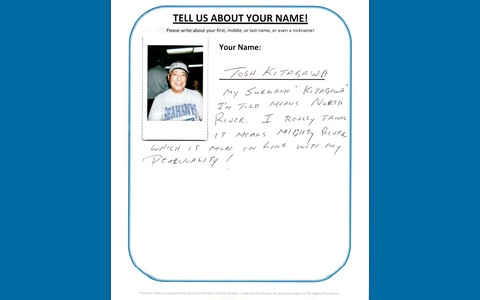 TELL US ABOUT YOUR NAME!
Please write about your first, middle, or last name, or even a nickname!
Your Name:
TOSH KITAGAWA
MY SURNAME "KITAGAWA"
I'M TOLD MEANS NORTH
RIVER. I REALLY THINK
IT MEANS MIGHTY RIVER
WHICH IS MORE IN LINE WITH MY
PERSONALITY!
SEAHAWKS